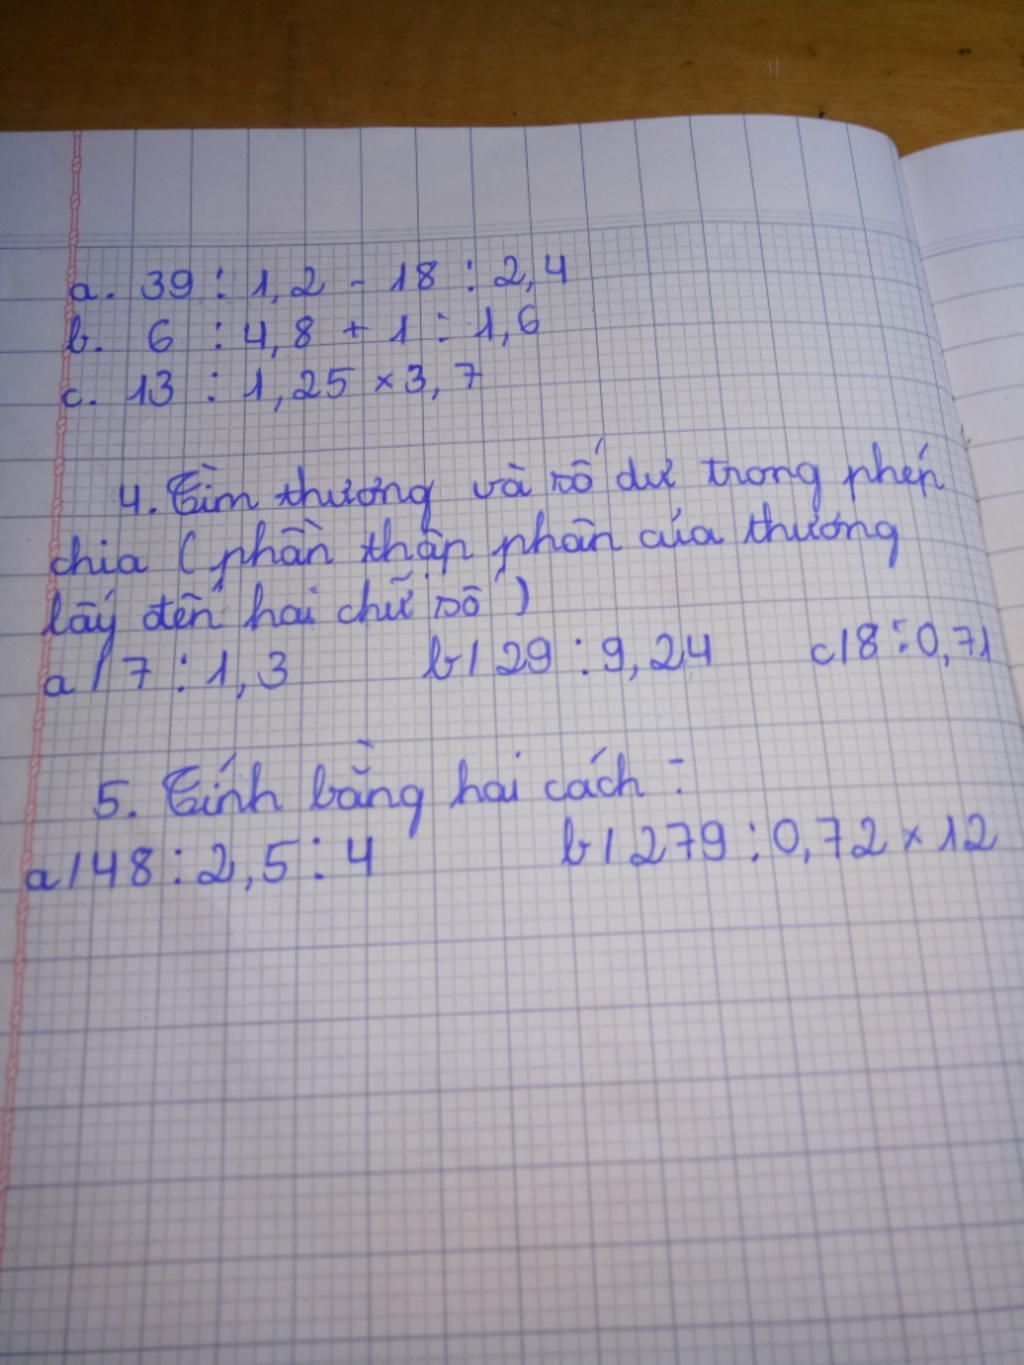 a. 39 : 1,2 - 18 : 2,4
b. 6 : 4,8 + 1 : 1,6
c. 13 : 1,25 × 3,7
4. Tìm thương và số dư trong phép
chia (phần thập phân của thương
lấy đến hai chữ số)
a/ 7 : 1,3 b/ 29 : 9,24 c/ 8 : 0,71
5. Tính bằng hai cách :
a/ 48 : 2,5 : 4 b/ 279 : 0,72 × 12